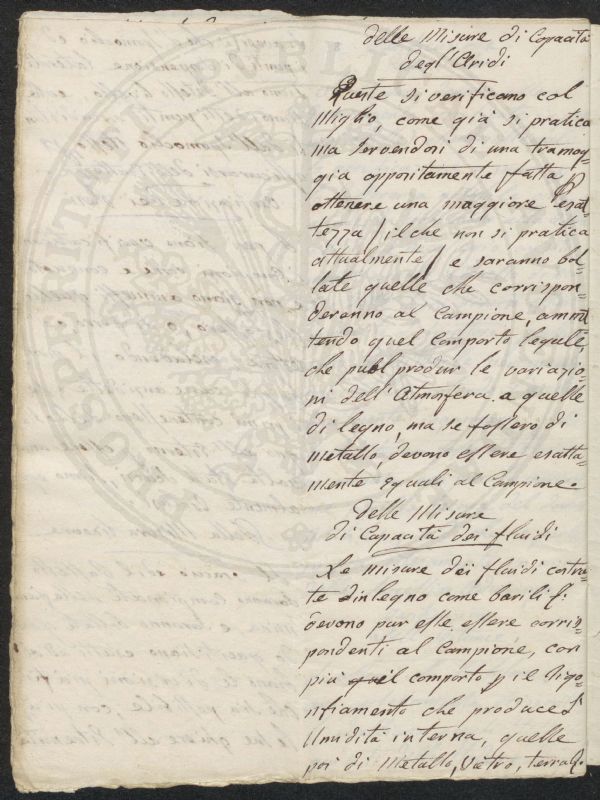 delle Misure di Capacità
degl'Aridi
Queste si verificano col
Miglio, come già si pratica
ma servendosi di una tramog=
gia appositamente fatta p
ottenere una maggiore esat=
tezza / il che non si pratica
attualmente / e saranno bol=
late quelle che corrispon=
deranno al Campione, amet=
tendo quel comporto legale,
che può produr le variazio=
ni dell'Atmosfera a quelle
di legno, ma se fossero di
metallo, devono essere esatta=
mente eguali al Campione.
delle Misure
di Capacità dei fluidi
Le misure dei fluidi costrui=
te di legno come barili
devono pur esse essere corris=
pondenti al Campione, con
più il comporto p il rigo=
nfiamento che produce l'
Umidità interna, quelle
poi di Metallo, Vetro, terra